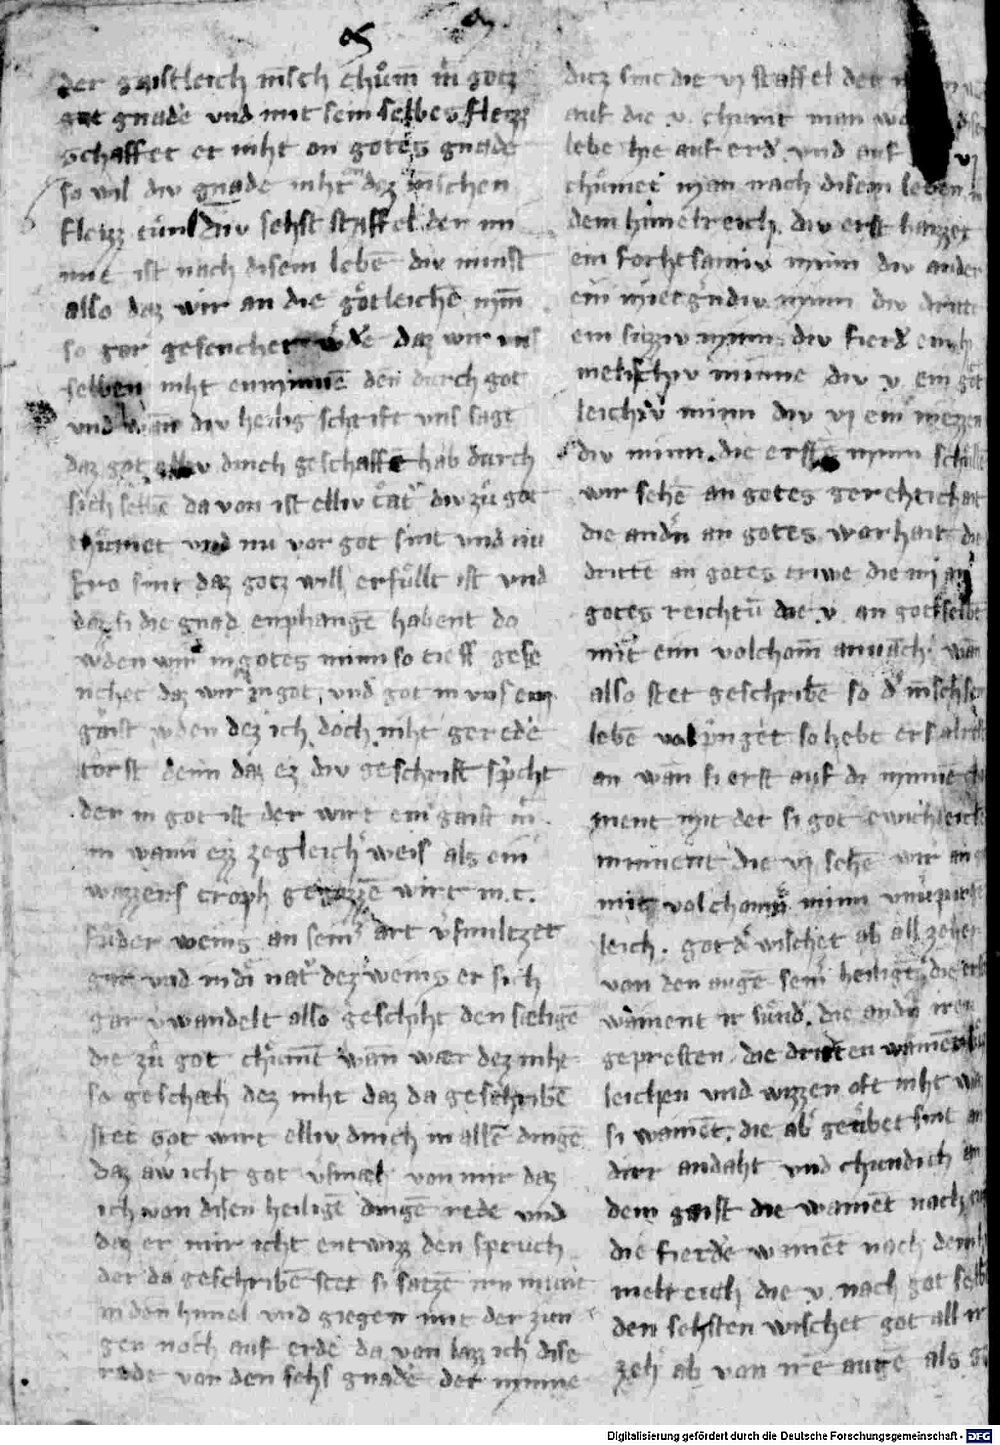 der gaistleich mēsch chům̄ in gotz
gat gnade vnd mit sein selbes fleizz
schaffet er niht on gotes gnade
so wil div gnade niht an dez mēschen
fleizz tůn div sehst staffel der mi
nne ist nach disem lebē div minst
also daz wir an die gǒtleichē mīn
so gar gesenchet wͤde daz wir vns
selben niht enminnē den durch got
vnd wān div heilig schrift vns sagt
daz got elliv dinch geschaffē hab durch
sich selbē da von ist elliv cͦat div zů got
chůmet vnd nu vor got sint vnd nu
fro sint daz gotz will erfůllt ist vnd
daz si die gnad enphangē habent do
wͤden wir in gotes minn so tieff gese
nchet daz wir in got, vnd got in vns ein
gaist wͤden dez ich doch niht gerede
torst denn daz ez div geschrift sprͥcht
der in got ist der wirt ein gaist mͥ
im wann ezz zegleichͤ weis als ein
wazzers troph gegozzē wirt in .c.
fůder weins an seinͤ art vͤsmiltzet
gar vnd in di natͤ dez weins er sich
gar vͤwandelt also geschiht den sæligē
die zů got chůmēt wān wær dez niht
so geschæh dez niht daz da geschribē
stet got wirt elliv dinch in allē dingē
daz aw icht got vͤsmæh von mir daz
ich von disen heiligē dingē rede vnd
daz er mir icht entwizz den spruch
der da geschribē stet si satzē irn munt
in den himel vnd giegen mit der zun
gen noch auf erde da von lazz ich dise
rede von den sehs gnade der minne
dicz sint die vj staffel der
auf die .v. chumt man
lebē hie auf erd vnd auf vj
chůmet man nach disem leben in
dem himelreich. div erst haizzet
ein forhtsamiv minn div ander
ein mietgͤndiv minn div dritt
ein sůzziv minn div fierd ein h
melischiv minne div .v. ein got
leichiv minn div vj ein niezzen
div minn. die erstē minn schůlle
wir sehē an gotes gerehtichait
die andͤn an gotes warhait die
dritte an gotes triwe die iiij an
gotes reichtū die .v. an got selbē
mit einͤ volchom̄ annāch wan
also stet geschribē so dͤ mēsch sei
lebē volpringet so hebt er sich
an wān si erst auf di minnē
ment mit der si got ewichleich
minnent die vj sehē wir an g
mit volchomn minn
leich. got dͤ wischet ab all zeher
von den augē seinͤ heiligē die erst
wainent ir sůnd. die andͤn iren
gepresten. die dritten wainēt
leichen vnd wizzen oft niht wa
si wainēt. die abͤ geůbet sint an
dirr andaht vnd chundich an
dem gaist die wainēt nach
die fierde wainēt nach dem h
melreich die .v. nach got selb
den sehsten wischet got all ir
zehͤ ab von irē augē als g
Digitalisierung gefördert durch die Deutsche Forschungsgemeinschaft - DFG